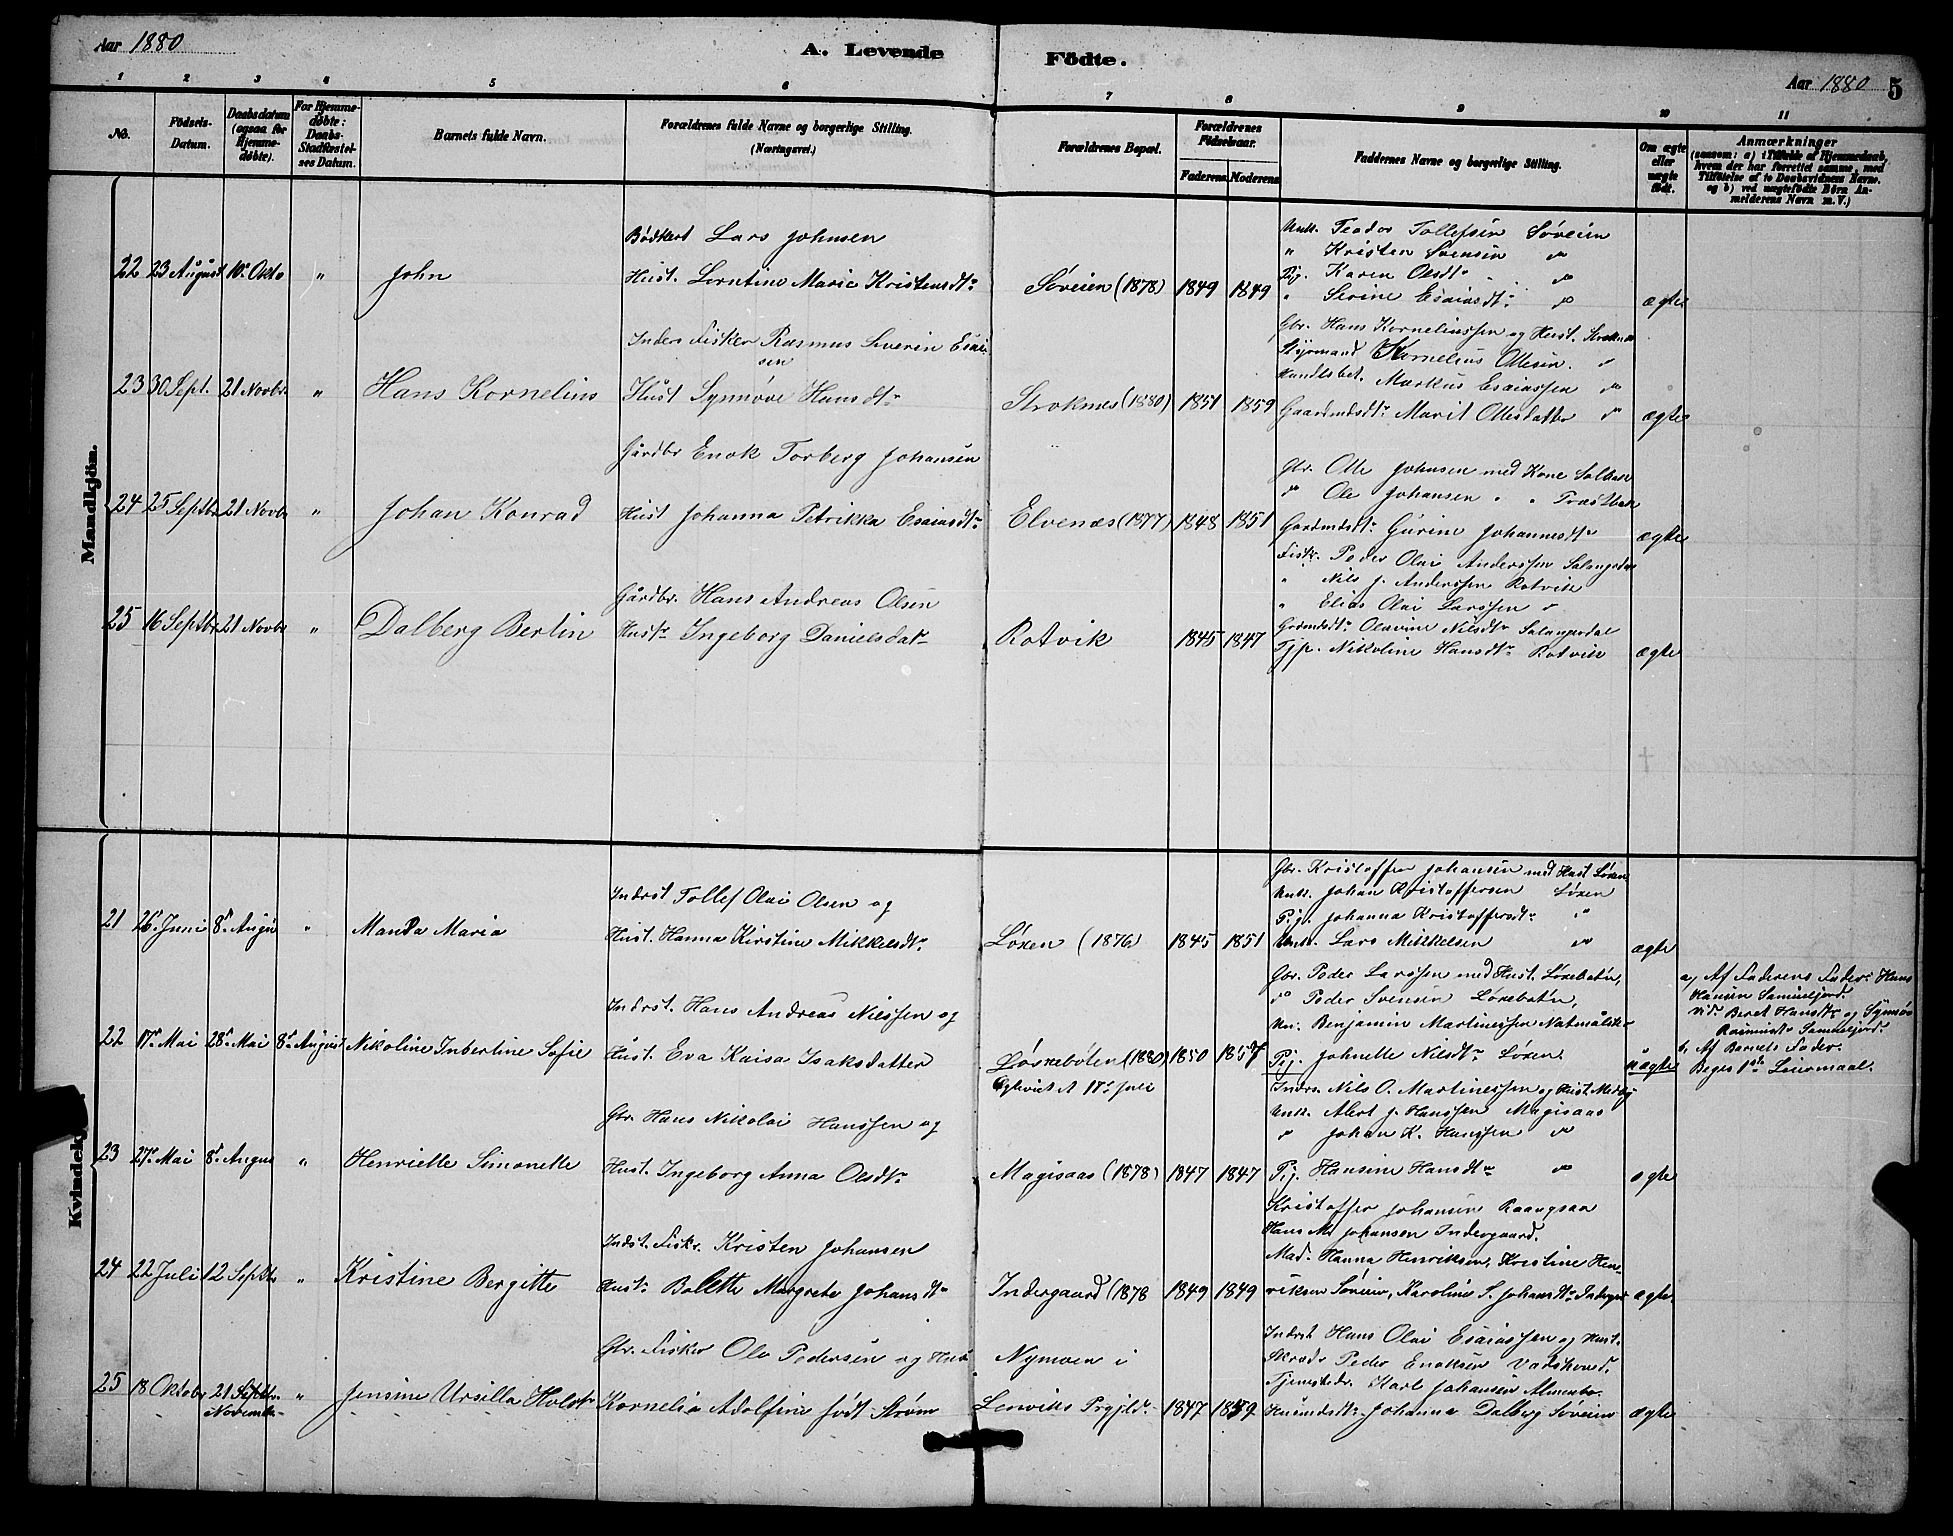 Aar 1880
A. Levende Födte.
Aar 1880 5
1 2 3 4 5 6 7 8 9 10 11
No.
Födsels-Datum.
Daabsdatum (ogsaa for Hjemmedöbte).
For Hjemmedöbte: Daabs-Stadfæstelses Datum.
Barnets fulde Navn.
Forældrenes fulde Navne og borgerlige Stilling. (Næringsvei.)
Forældrenes Bopæl.
Forældrenes Födselsaar.
Faderens. Moderens.
Faddernes Navne og borgerlige Stilling.
Om ægte eller uægte födt.
Anmærkninger (saasom: a) i Tilfælde af Hjemmedaab, hvem der har forrettet samme, med Tilföielse af to Daabsvidners Navne, og b) ved uægtefödte Börn Anmelderens Navn m. V.)
Mandkjön.
22 23 August 10de Okto " John
Bødkert Lars Johnsen
Hust. Lorntine Marie Kristensdtr
Søveien (1878) 1849 1849
Unk. Teodor Tollefsen Søveien
" Kristen Svensen do
Pig. Karen Olsdtr do
" Serine Esaiasdtr do
ægte
23 30 Sept. 21 Novbr " Hans Kornelius
Inders Fisker Rasmus Severin Esaisen
Hust Synnøve Hansdtr
Stroknes (1880) 1851 1859
Gbr. Hans Korneliussen og Hust. Stroknes
Styrmand Kornelius Ottesen. do
Handlsbet. Markus Esaiassen do
Gaardmdsdtr Marit Ottesdatter do
ægte
24 25 Septbr 21 Novbr " Johan Konrad
Gårdbr Enok Torberg Johansen
Hust Johanna Petrikka Esaiasdtr
Elvenæs (1877) 1848 1851
Gbr. Otte Johnsen med Kone
do Ole Johansen " "
Gardmdsdtr Gurine Johannesdtr
ægte
25 16 Septbr 21 Novbr " Dalberg Berlin
Gårdbr. Hans Andreas Olsen
Hustr Ingeborg Danielsdatr
Rotvik 1845 1847
Fisk. Peder Olai Anderssen Salangsdal
" Nils J. Anderssen Rotvik
" Elias Olai Larssen do
Grdmdsdtr Olavine Nilsdtr Salangsdal
Tjp. Nikoline Hansdtr Rotvik
ægte
Kvindekjön.
21 26de Juni 8de Augu " Manda Maria
Indrst Tollef Olai Olsen og
Hust. Hanna Kirstine Mikkelsdtr
Løxen (1876) 1845 1851
Gbr. Kristoffer Johansen med Hust Løxen
Unk. Johan Kristoffersen Løxen
Pig. Johanna Kristoffersdtr do
Unk. Lars Mikkelsen do
ægte
22 17de Mai 28de Mai 8de August Nikoline Inbertine Sofie
Indrst. Hans Andreas Nilssen og
Hust. Eva Kaisa Isaksdatter
Løxeboten (1880) 1850 1857
Egteviet d 17de Juli
Gbr. Peder Larssen med Hust. Løxebotn,
do Peder Svensen Løxebotn,
Un. Benjamin Martinessen
Pig. Johnette Nilsdtr Løxen.
uægte
a, Af Faderens Fader Hans Hansen
Vid. Beret Hansdtr og Synnøv
b, Af Barnets Fader.
Beges 1ste Leiermaal.
23 27de Mai 8de Augus " Henriette Simonette
Gbr. Hans Nikolai Hanssen og
Hust. Ingeborg Anna Olsdtr
Magisaas (1878) 1847 1847
Indrs. Nils O. Martinessen og Hust Medby
Unk. Albert J. Hanssen Magisaas
do Johan K. Hanssen do
Pig. Hansine Hansdtr do
ægte
24 22 Juli 12 Septbr " Kristine Bergitte
Indst. Fiskr. Kristen Johansen
Hustr Bolette Margrete Johansdtr
Indergaard (1878 1849 1849
Kristoffer Johansen
Hans M Johansen Indergaard.
Mad. Hanna Henriksen, Kristine Henriksen Søveien, Karoline S. Johansdtr Indergrd
ægte.
25 18 Oktobr 21 Septbr. November " Jensine Ursilla Holst
Gbr. Fisker Ole Pedersen og Hust
Kornelia Adolfine født Strøm
Nymoen i
Lenviks Prgjld. 1847 1859
Indrst Hans Olai Esaiassen og Hust.
Skrædr Peder Enoksen
Tjenestedr. Karl Johansen
Husmdsdtr Johanna Dalberg Søveien
ægte